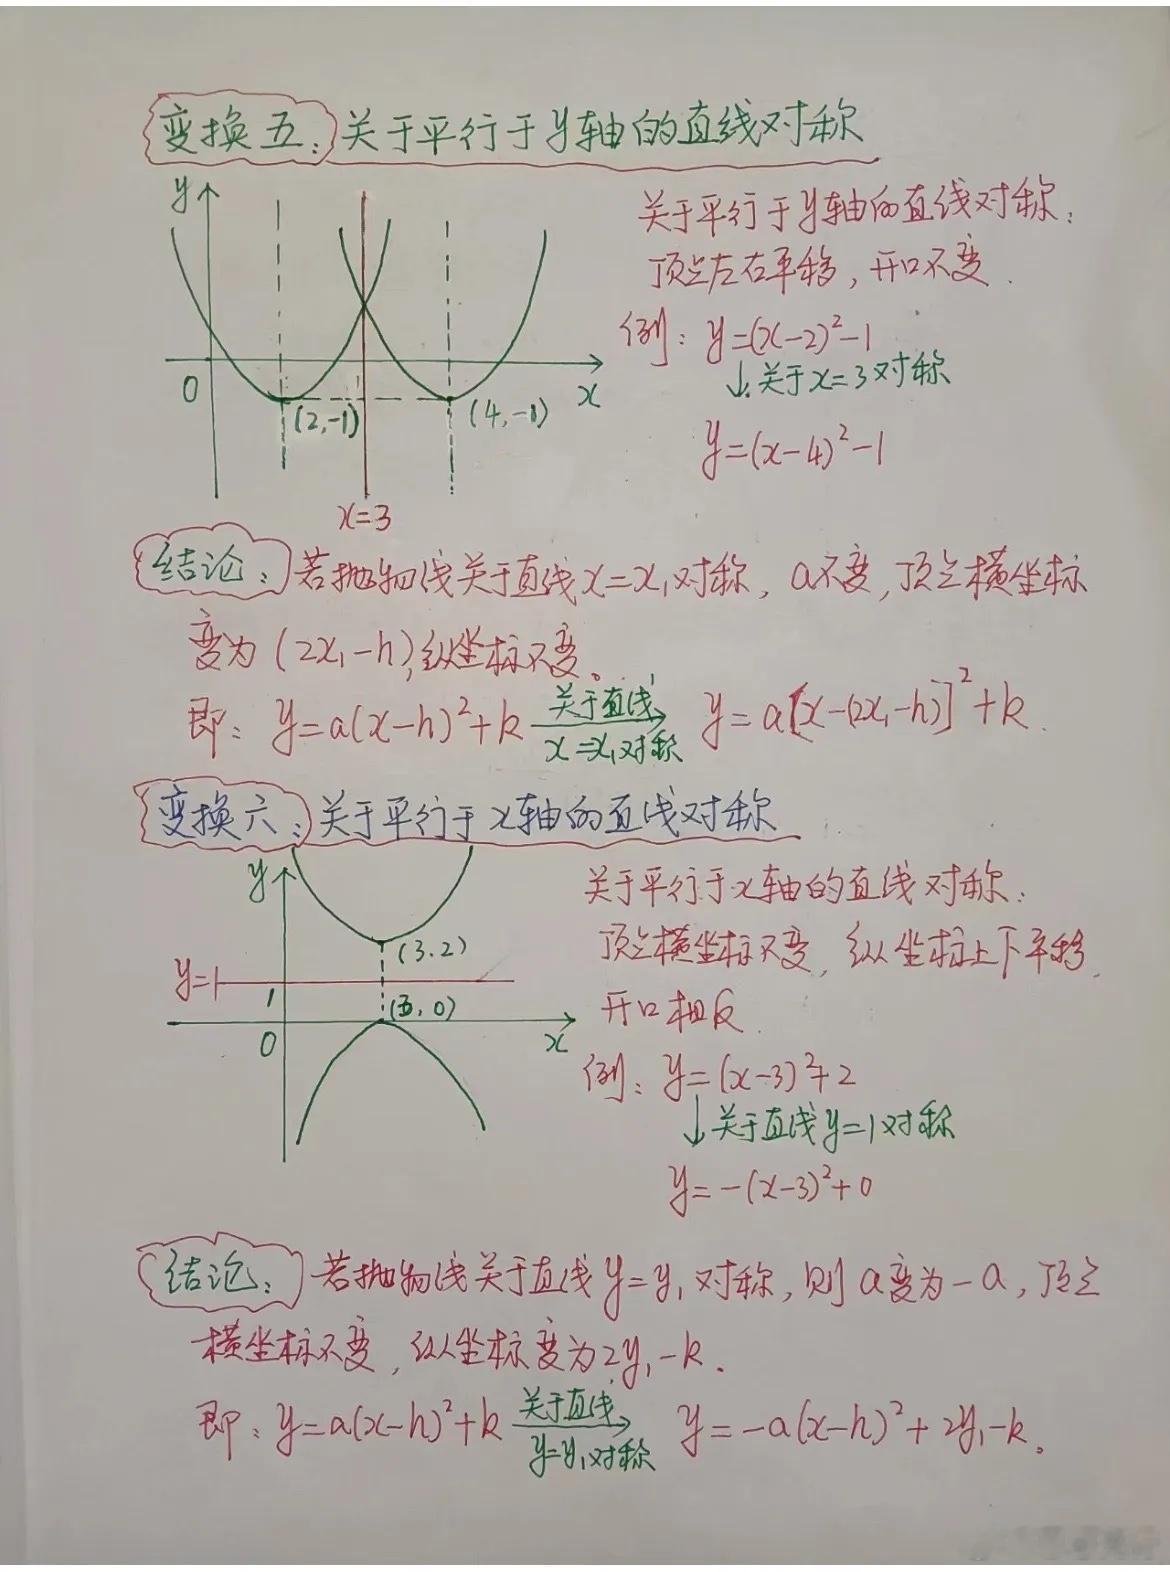 变换五：关于平行于y轴的直线对称
y
0
x
(2,-1)
(4,-1)
x=3
关于平行于y轴的直线对称：
顶点左右平移，开口不变．
例：y=(x-2)²-1
↓关于x=3对称
y=(x-4)²-1
结论：若抛物线关于直线x=x₁对称，a不变，顶点横坐标
变为(2x₁-h),纵坐标不变。
即：y=a(x-h)²+k 关于直线 x=x₁对称 → y=a[x-(2x₁-h)]²+k．
变换六：关于平行于x轴的直线对称
y
(3.2)
y=1
1
(3,0)
0
x
关于平行于x轴的直线对称：
顶点横坐标不变，纵坐标上下平移，
开口相反．
例：y=(x-3)²+2
↓关于直线y=1对称
y=-(x-3)²+0
结论：若抛物线关于直线y=y₁对称，则a变为-a，顶点
横坐标不变，纵坐标变为2y₁-k．
即：y=a(x-h)²+k 关于直线 y=y₁对称 → y=-a(x-h)²+2y₁-k。